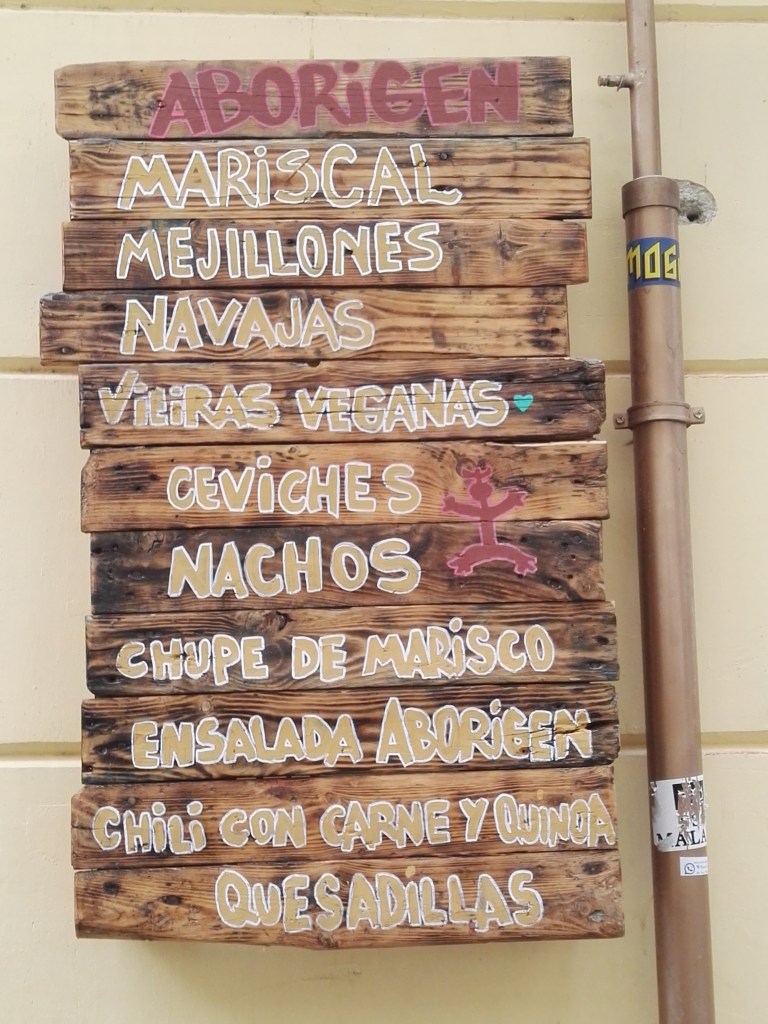 ABORiGEN
MARiSCAL
MEJILLONES
NAVAJAS
ViEiRAS VEGANAS
CEViCHES
NACHOS
CHUPE DE MARiSCO
ENSALADA ABORiGEN
CHiLi CON CARNE Y QUINOA
QUESADILLAS
MOS
MÁLA